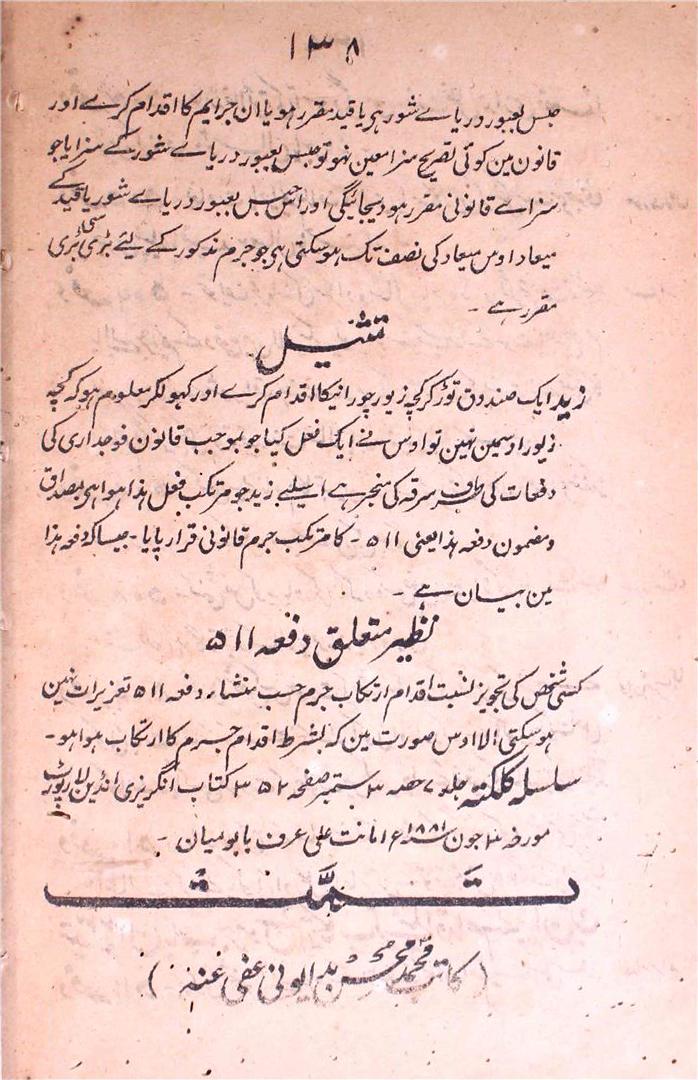 ۱۳۸
حبس بعبور دریاے شور ہر یا قید مقرر ہو یا ان جرایم کا اقدام کرے اور
قانون مین کوئی تصریح سزا معین نہو تو حبس بعبور دریاے شور کے سزا یا جو
سزاے قانونی مقرر ہو دیجائیگی اور اس حبس بعبور دریاے شور یا قید کے
میعاد اوس میعاد کی نصف تک ہوسکتی ہی جو جرم مذکور کے لیئے بڑی سی بڑی
مقرر ہے ۔
تمثیل
زید ایک صندوق توڑ کر کچہ زیور چورانیکا اقدام کرے اور کہولکر معلوم ہو کہ کچہ
زیور اوسمین نہین تو اوس نے ایک فعل کیا جو بموجب قانون فوجداری کی
دفعات کی طرف سرقہ کی منجر ہے اسیلیے زید جو مرتکب فعل ہذا ہوا ہی بمصداق
و مضمون دفعہ ہذا یعنی ۵۱۱ ۔ کا مرتکب جرم قانونی قرار پایا ۔ جیسا کہ دفعہ ہذا
مین بیان ہے ۔
نظیر متعلق دفعہ ۵۱۱
کسی شخص کی تجویز نسبت اقدام ارتکاب جرم حسب منشاء دفعہ ۵۱۱ تعزیرات نہین
ہوسکتی الا اوس صورت مین کہ بشرط اقدام جرم کا ارتکاب ہوا ہو ۔
سلسلہ کلکتہ جلد ۷ حصہ ۳ ستمبر صفحہ ۳۵۲ کتاب انگریزی انڈین لا رپورٹ
مورخہ ۳ جون سنہ ۱۸۸۱ء امانت علی عرف بابو میان ۔
تمّت
(کاتب محمد محسن بدایونی عفی عنہ)